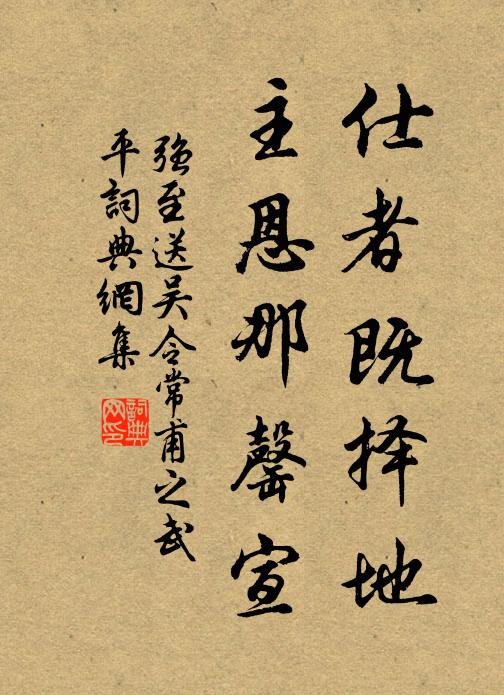 仕者既择地
主恩那罄宣
強至送吴令常甫之武
平詞典網集
詞典
网印